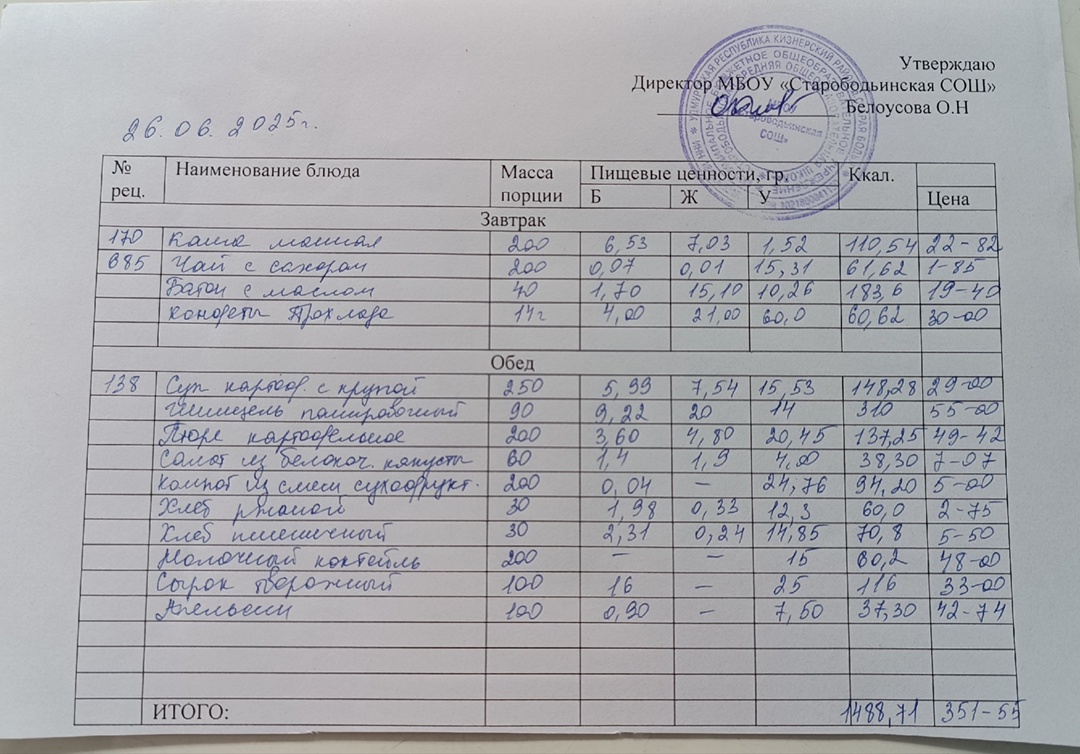 Утверждаю
Директор МБОУ «Старободьинская СОШ»
Белоусова О.Н
26.06.2025г.
№ рец. Наименование блюда Масса порции Пищевые ценности, гр. Ккал.
Б Ж У Цена
Завтрак
170 Каша манная 200 6,53 7,03 1,52 110,54 22-82
685 Чай с сахаром 200 0,07 0,01 15,31 61,62 1-85
Батон с маслом 40 1,70 15,10 10,26 183,6 19-40
Конфеты Прохлада 14г 4,00 21,00 60,0 60,62 30-00
Обед
138 Суп картоф. с крупой 250 5,99 7,54 15,53 148,28 29-00
Шницель панировочный 90 9,22 20 14 310 55-00
Пюре картофельное 200 3,60 4,80 20,45 137,25 49-42
Салат из белокоч. капусты 60 1,4 1,9 4,00 38,30 7-07
Компот из смеси сухофрукт. 200 0,04 – 24,76 94,20 5-00
Хлеб ржаной 30 1,98 0,33 12,3 60,0 2-75
Хлеб пшеничный 30 2,31 0,24 14,85 70,8 5-50
Молочный коктейль 200 – – 15 60,2 48-00
Сырок творожный 100 16 – 25 116 33-00
Апельсин 100 0,90 – 7,50 37,30 42-74
ИТОГО: 1488,71 351-55